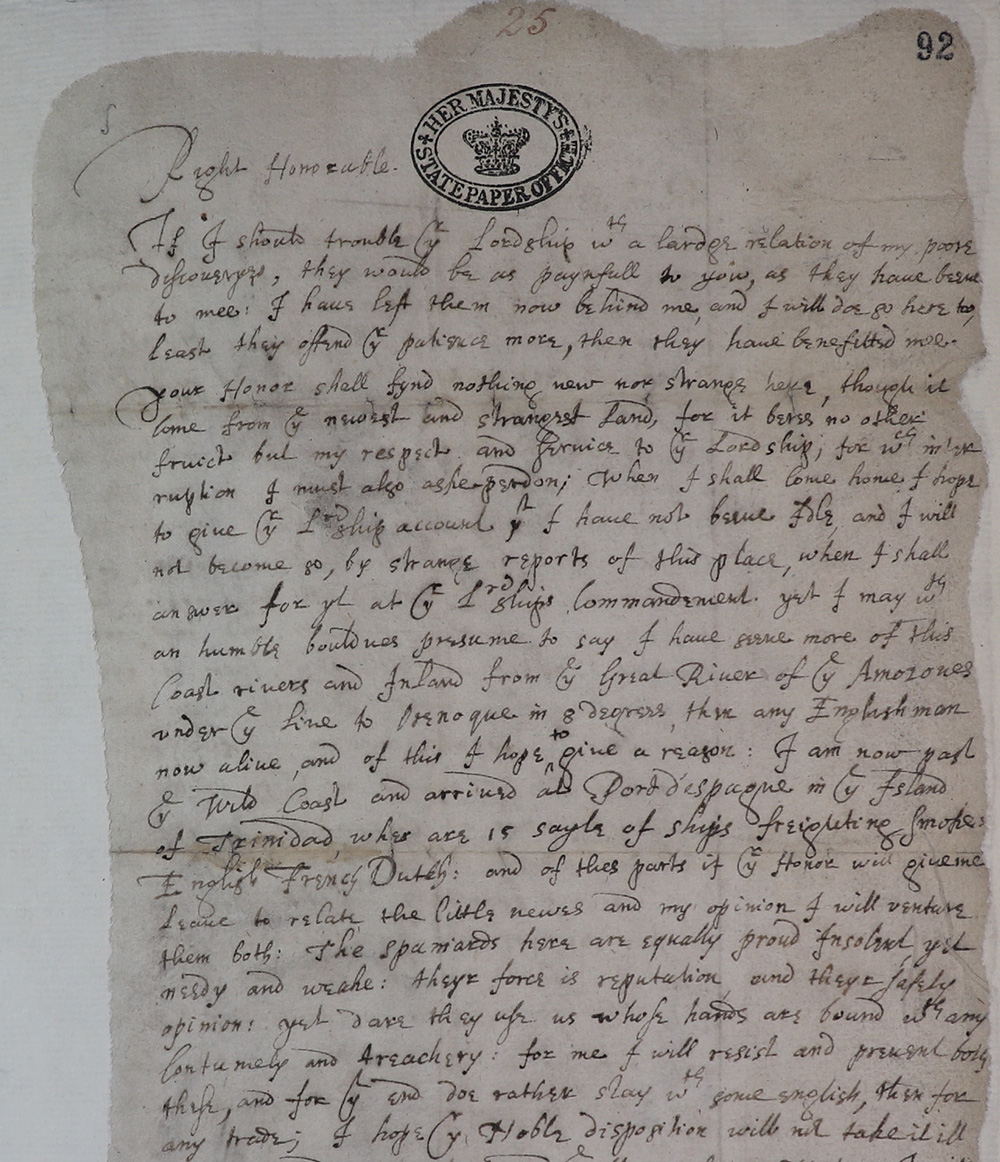 25
92
HER MAJESTY'S STATE PAPER OFFICE
Right Honorable.
If I should trouble yr Lordship wth a lardge relation of my poore
discoueryes, they would be as paynfull to yow, as they have beene
to mee: I have left them now behind me, and I will doe so here to,
least they offend yr patience more, then they have benefitted mee.
your Honor shall fynd nothing new nor strange here, though it
come from ye newest and strangest Land, for it beres no other
fruict but my respect and service to yr Lordship; for wch inter
ruption I must also aske perdon; When I shall come home I hope
to give yr Lrdship account yt I have not beene Idle, and I will
not become so, by strange reports of this place, when I shall
answer for yt at yr Lrdships Commandement. yet I may wth
an humble bouldnes presume to say I have seene more of this
Coast rivers and Inland from ye Great River of ye Amozones
vnder ye line to Orenoque in 8 degrees, then any Englishman
now alive, and of this I hope to give a reason: I am now past
ye Wild Coast and arrived at Port d'espagne in ye Island
of Trinidad, wher are 15 sayle of ships freighting Smoke:
English French Dutch: and of thes parts if yr Honor will give me
Leave to relate the little newes and my opinion I will venture
them both: The spaniards here are equally proud Insolent, yet
needy and weake: theyr force is reputation, and theyr safety
opinion: yet dare they use us whose hands are bound wth any
Contumely and treachery: for me I will resist and prevent both
these, and for yt end doe rather stay wth some english, then for
any trade; I hope yr Noble disposition will not take it ill